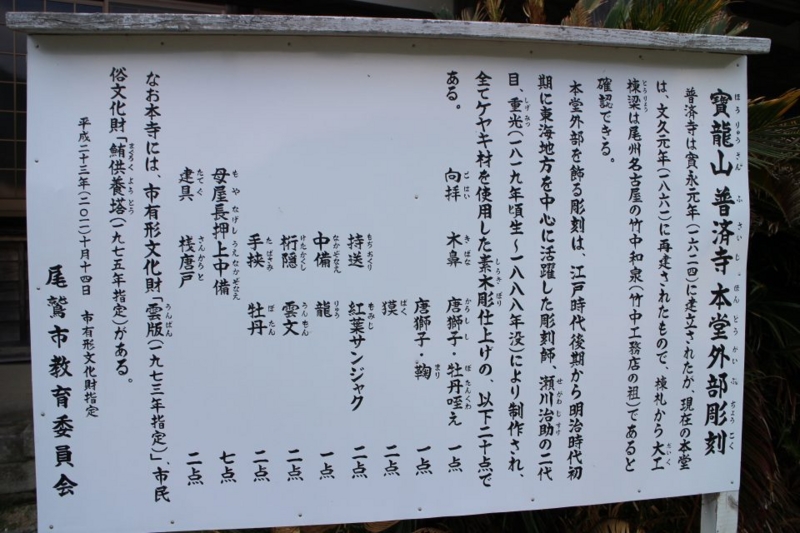 寶龍山 普済寺 本堂外部彫刻
普済寺は寛永元年(一六二四)に建立されたが、現在の本堂
は、文久元年(一八六一)に再建されたもので、棟札から大工
棟梁は尾州名古屋の竹中和泉(竹中工務店の祖)であると
確認できる。
本堂外部を飾る彫刻は、江戸時代後期から明治時代初
期に東海地方を中心に活躍した彫刻師、瀬川治助の二代
目、重光(一八一九年頃生〜一八八八年没)により制作され、
全てケヤキ材を使用した素木彫仕上げの、以下二十点で
ある。
向拝 木鼻 唐獅子・牡丹咥え 一点
唐獅子・鞠 一点
獏 二点
持送 紅葉サンジャク 二点
中備 龍 一点
桁隠 雲文 二点
手挟 牡丹 二点
母屋長押上中備 七点
建具 桟唐戸 二点
なお本寺には、市有形文化財「雲版(一九七三年指定)」、市民
俗文化財「鮪供養塔(一九七五年指定)がある。
平成二十三年(二〇一一)十月十四日 市有形文化財指定
尾鷲市教育委員会